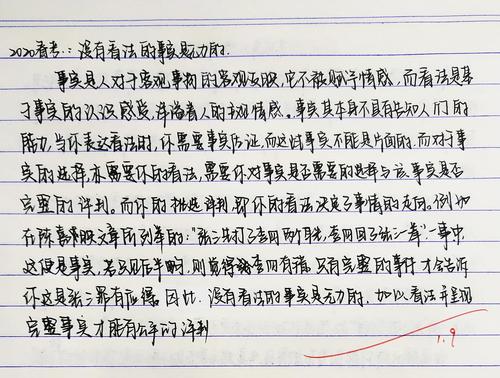 2020春考：没有看法的事实是无力的.
事实是人对于客观事物的客观反映,它不能赋予情感,而看法是基
于事实的认识感觉,洋溢着人的主观情感。事实其本身不具有告知人们的
能力,当你表达看法时,你需要事实佐证,而这些事实不能是片面的.而对于事
实的选择,亦需要你的看法,需要你对事实是否需要的选择与该事实是否
完整的评判。而你的挑选评判,即你的看法决定了事情的走向。例如
在陈喜 文章所列举的:"张三先打了李四两耳光,李四回了张三一拳"一事中
这便是事实,若只见后半 ,则觉得 李四有错,只有完整的事件才会告诉
你这是张三罪有应得.因此.没有看法的事实是无力的,加以看法并呈现
完整事实才能有公平的评判
1.9